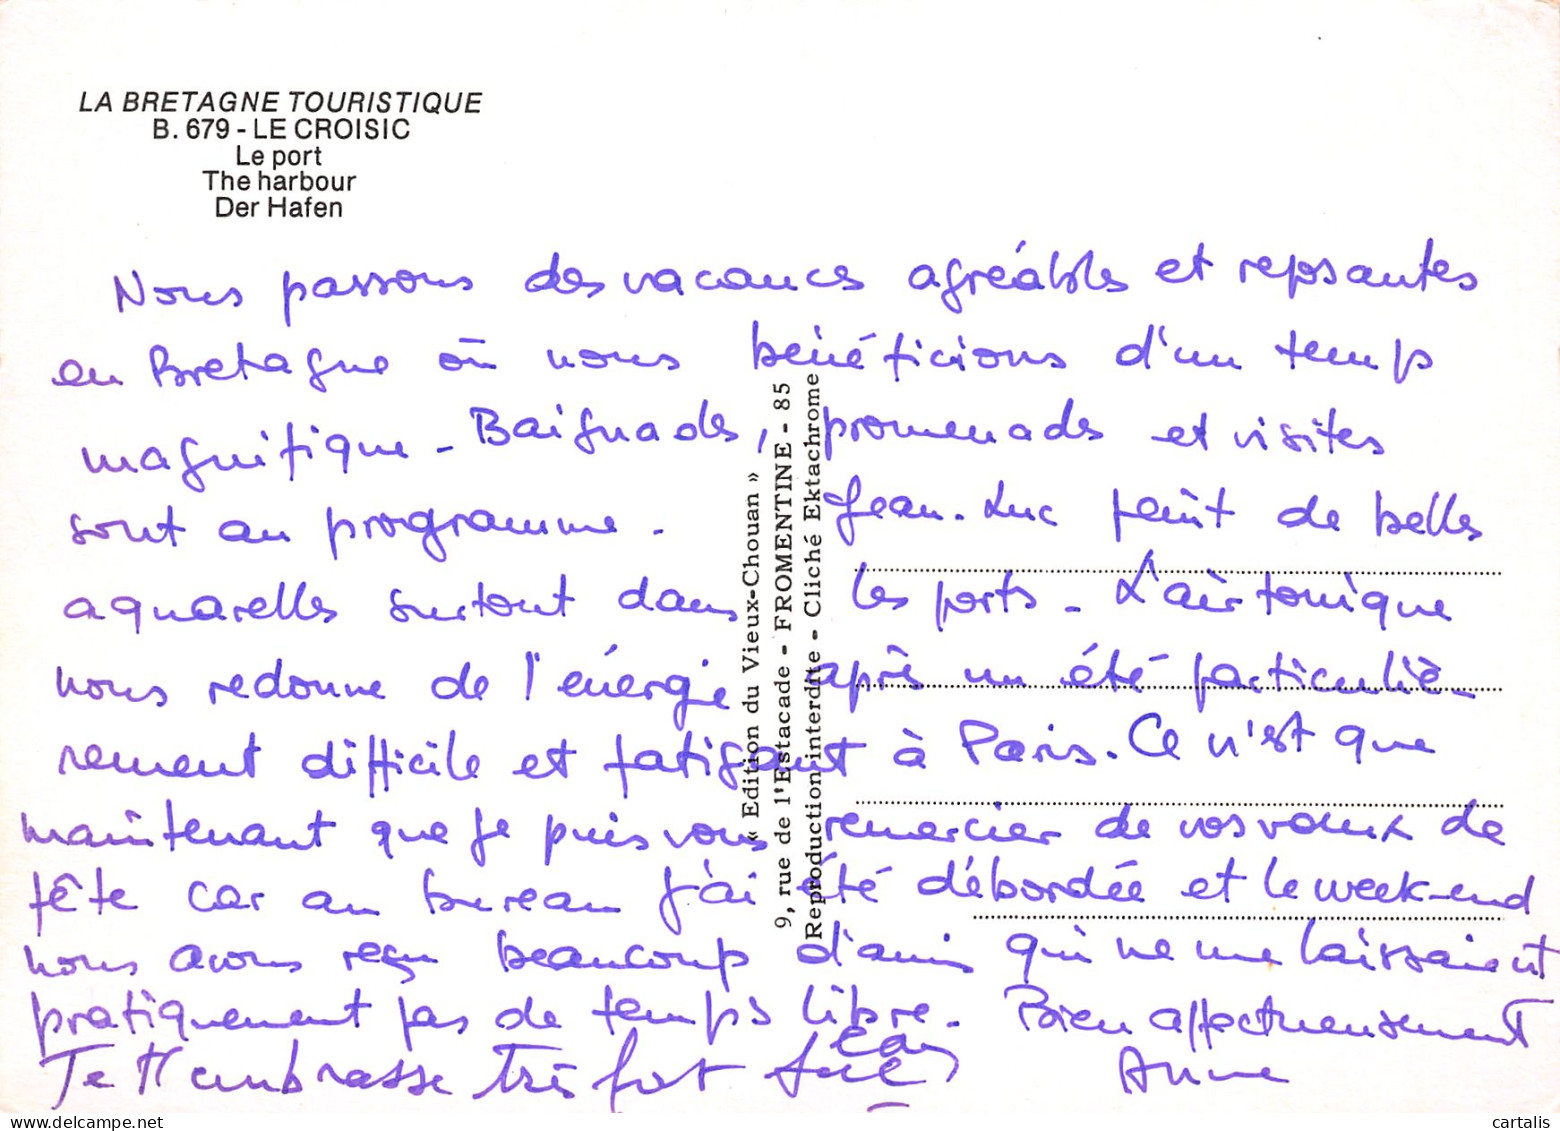 LA BRETAGNE TOURISTIQUE
B. 679 - LE CROISIC
Le port
The harbour
Der Hafen
Nous passons des vacances agréables et reposantes
en Bretagne où nous bénéficions d'un temps
magnifique - Baignades, promenades et visites
sont au programme. Jean-Luc peint de belles
aquarelles surtout dans les ports - L'air tonique
nous redonne de l'énergie après un été particuliè-
rement difficile et fatigant à Paris. Ce n'est que
maintenant que je puis vous remercier de vos voeux de
fête car au bureau j'ai été débordée et le week-end
nous avons reçu beaucoup d'amis qui ne me laissaient
pratiquement pas de temps libre. Bien affectueusement
Je t'embrasse très fort Jean Luc Anne
« Edition du Vieux-Chouan »
9, rue de l'Estacade - FROMENTINE - 85
Reproduction interdite - Cliché Ektachrome
cartalis